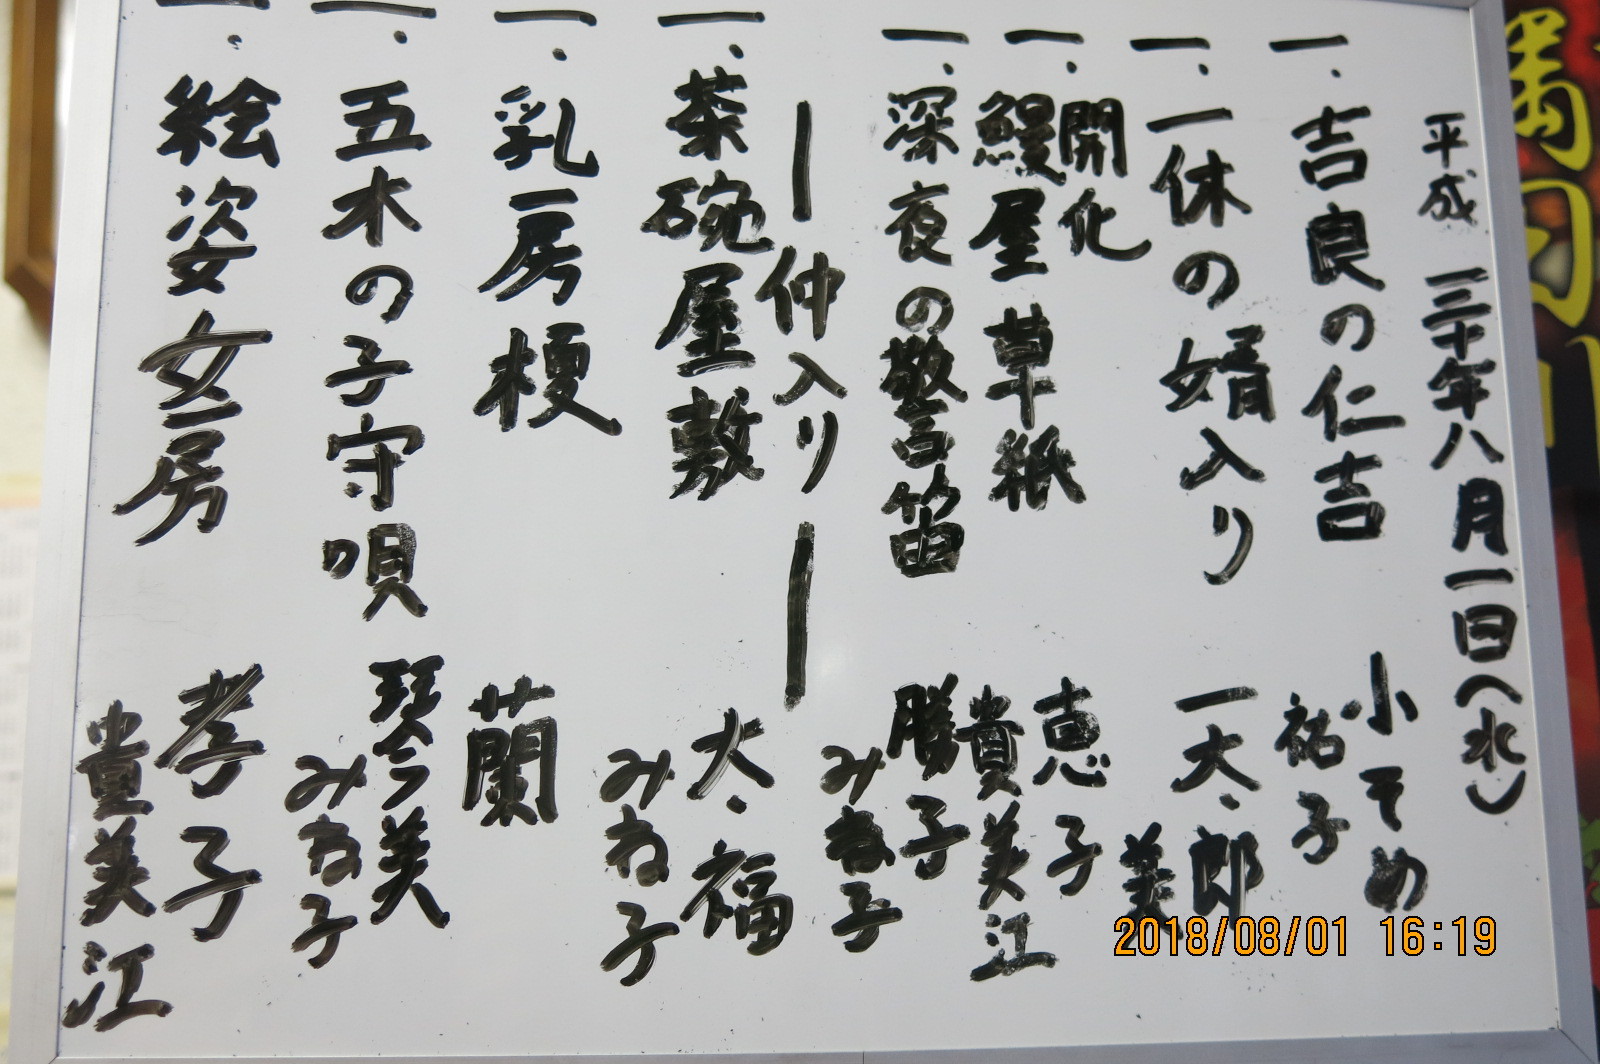 平成三十年八月一日(水)
一.吉良の仁吉
小そめ
祐子
一.一休の婿入り
一太郎
美
一.開化
鰻屋草紙
恵子
貴美江
一.深夜の警笛
勝子
みね子
仲入り
一.茶碗屋敷
太福
みね子
一.乳房榎
蘭
一.五木の子守唄
琴美
みね子
一.絵姿女房
孝子
貴美江
2018/08/01 16:19